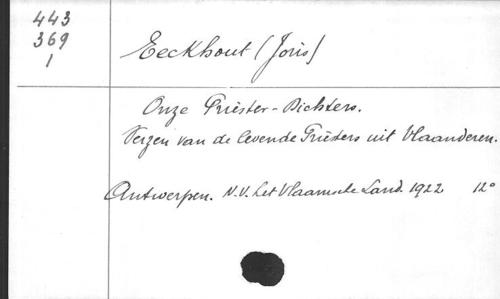 443
369
1
Eeckhout (Joris)
Onze Priester-Dichters.
Verzen van de levende Priesters uit Vlaanderen.
Antwerpen. N.V. het Vlaamsche Land. 1922 12°